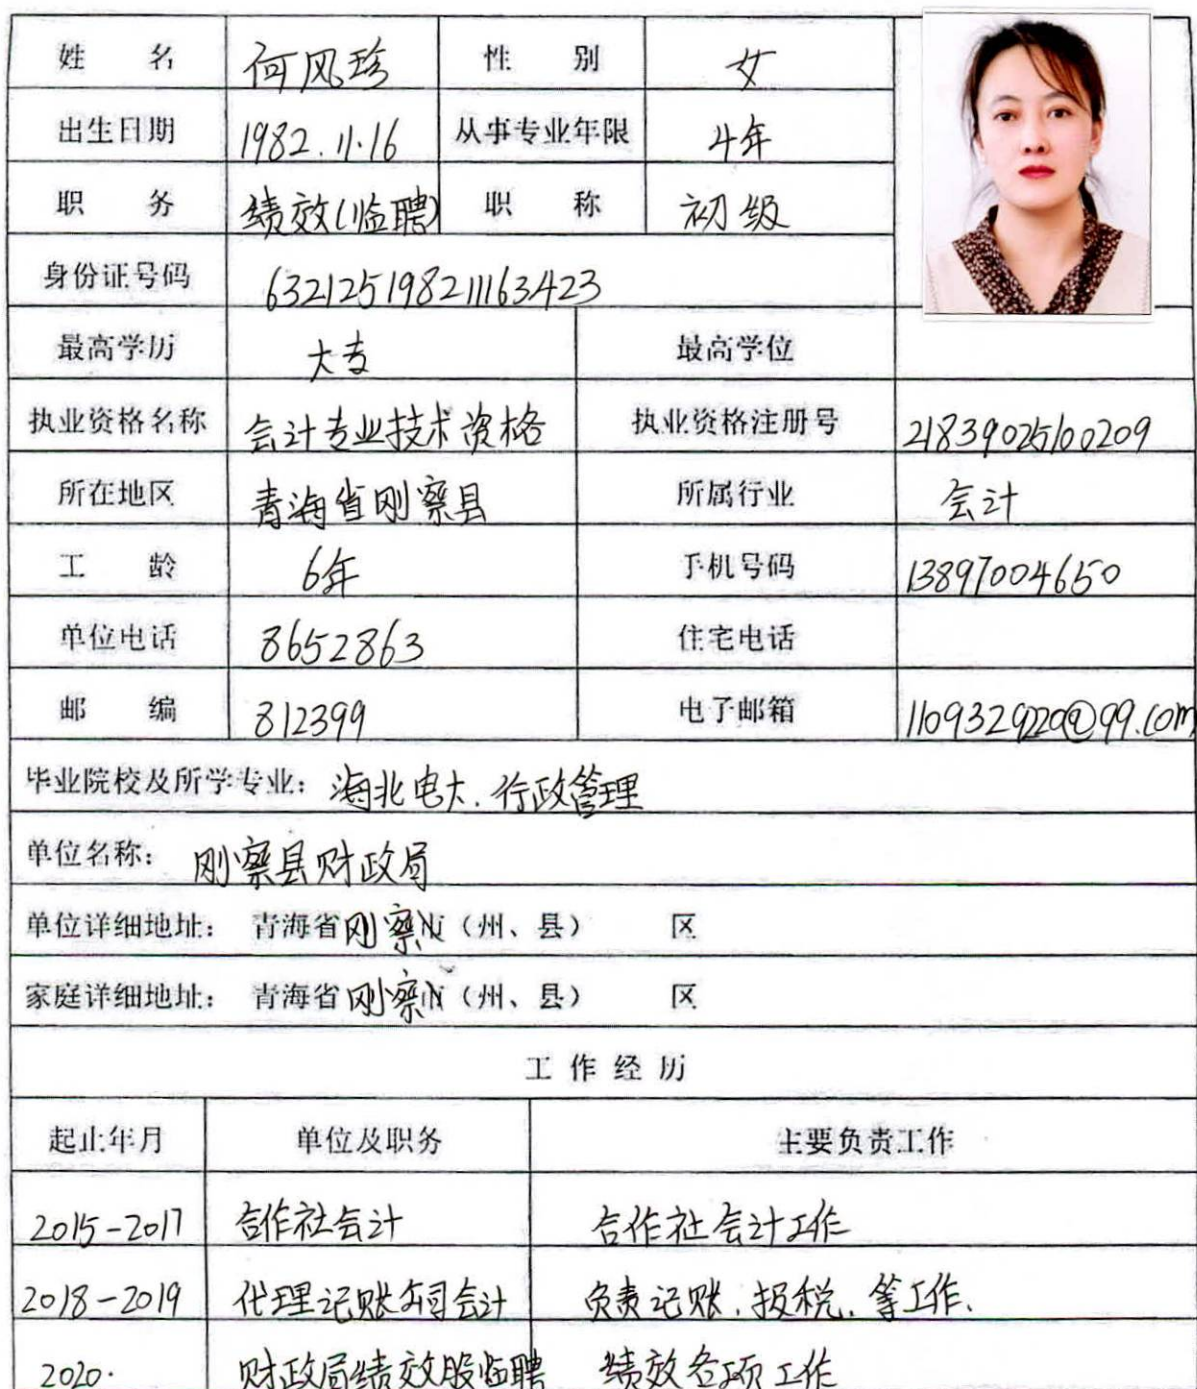 姓 名 何风珍 性 别 女
出生日期 1982.11.16 从事专业年限 4年
职 务 绩效(临聘) 职 称 初级
身份证号码 632125198211163423
最高学历 大专 最高学位
执业资格名称 会计专业技术资格 执业资格注册号 21839025100209
所在地区 青海省刚察县 所属行业 会计
工 龄 6年 手机号码 13897004650
单位电话 8652863 住宅电话
邮 编 812399 电子邮箱
毕业院校及所学专业: 海北电大.行政管理
单位名称: 刚察县财政局
单位详细地址: 青海省刚察 (州、县) 区
家庭详细地址: 青海省刚察 (州、县) 区
工作经历
起止年月 单位及职务 主要负责工作
2015-2017 合作社会计 合作社会计工作
2018-2019 代理记账公司会计 负责记账.报税.等工作.
2020. 财政局绩效股临聘 绩效各项工作